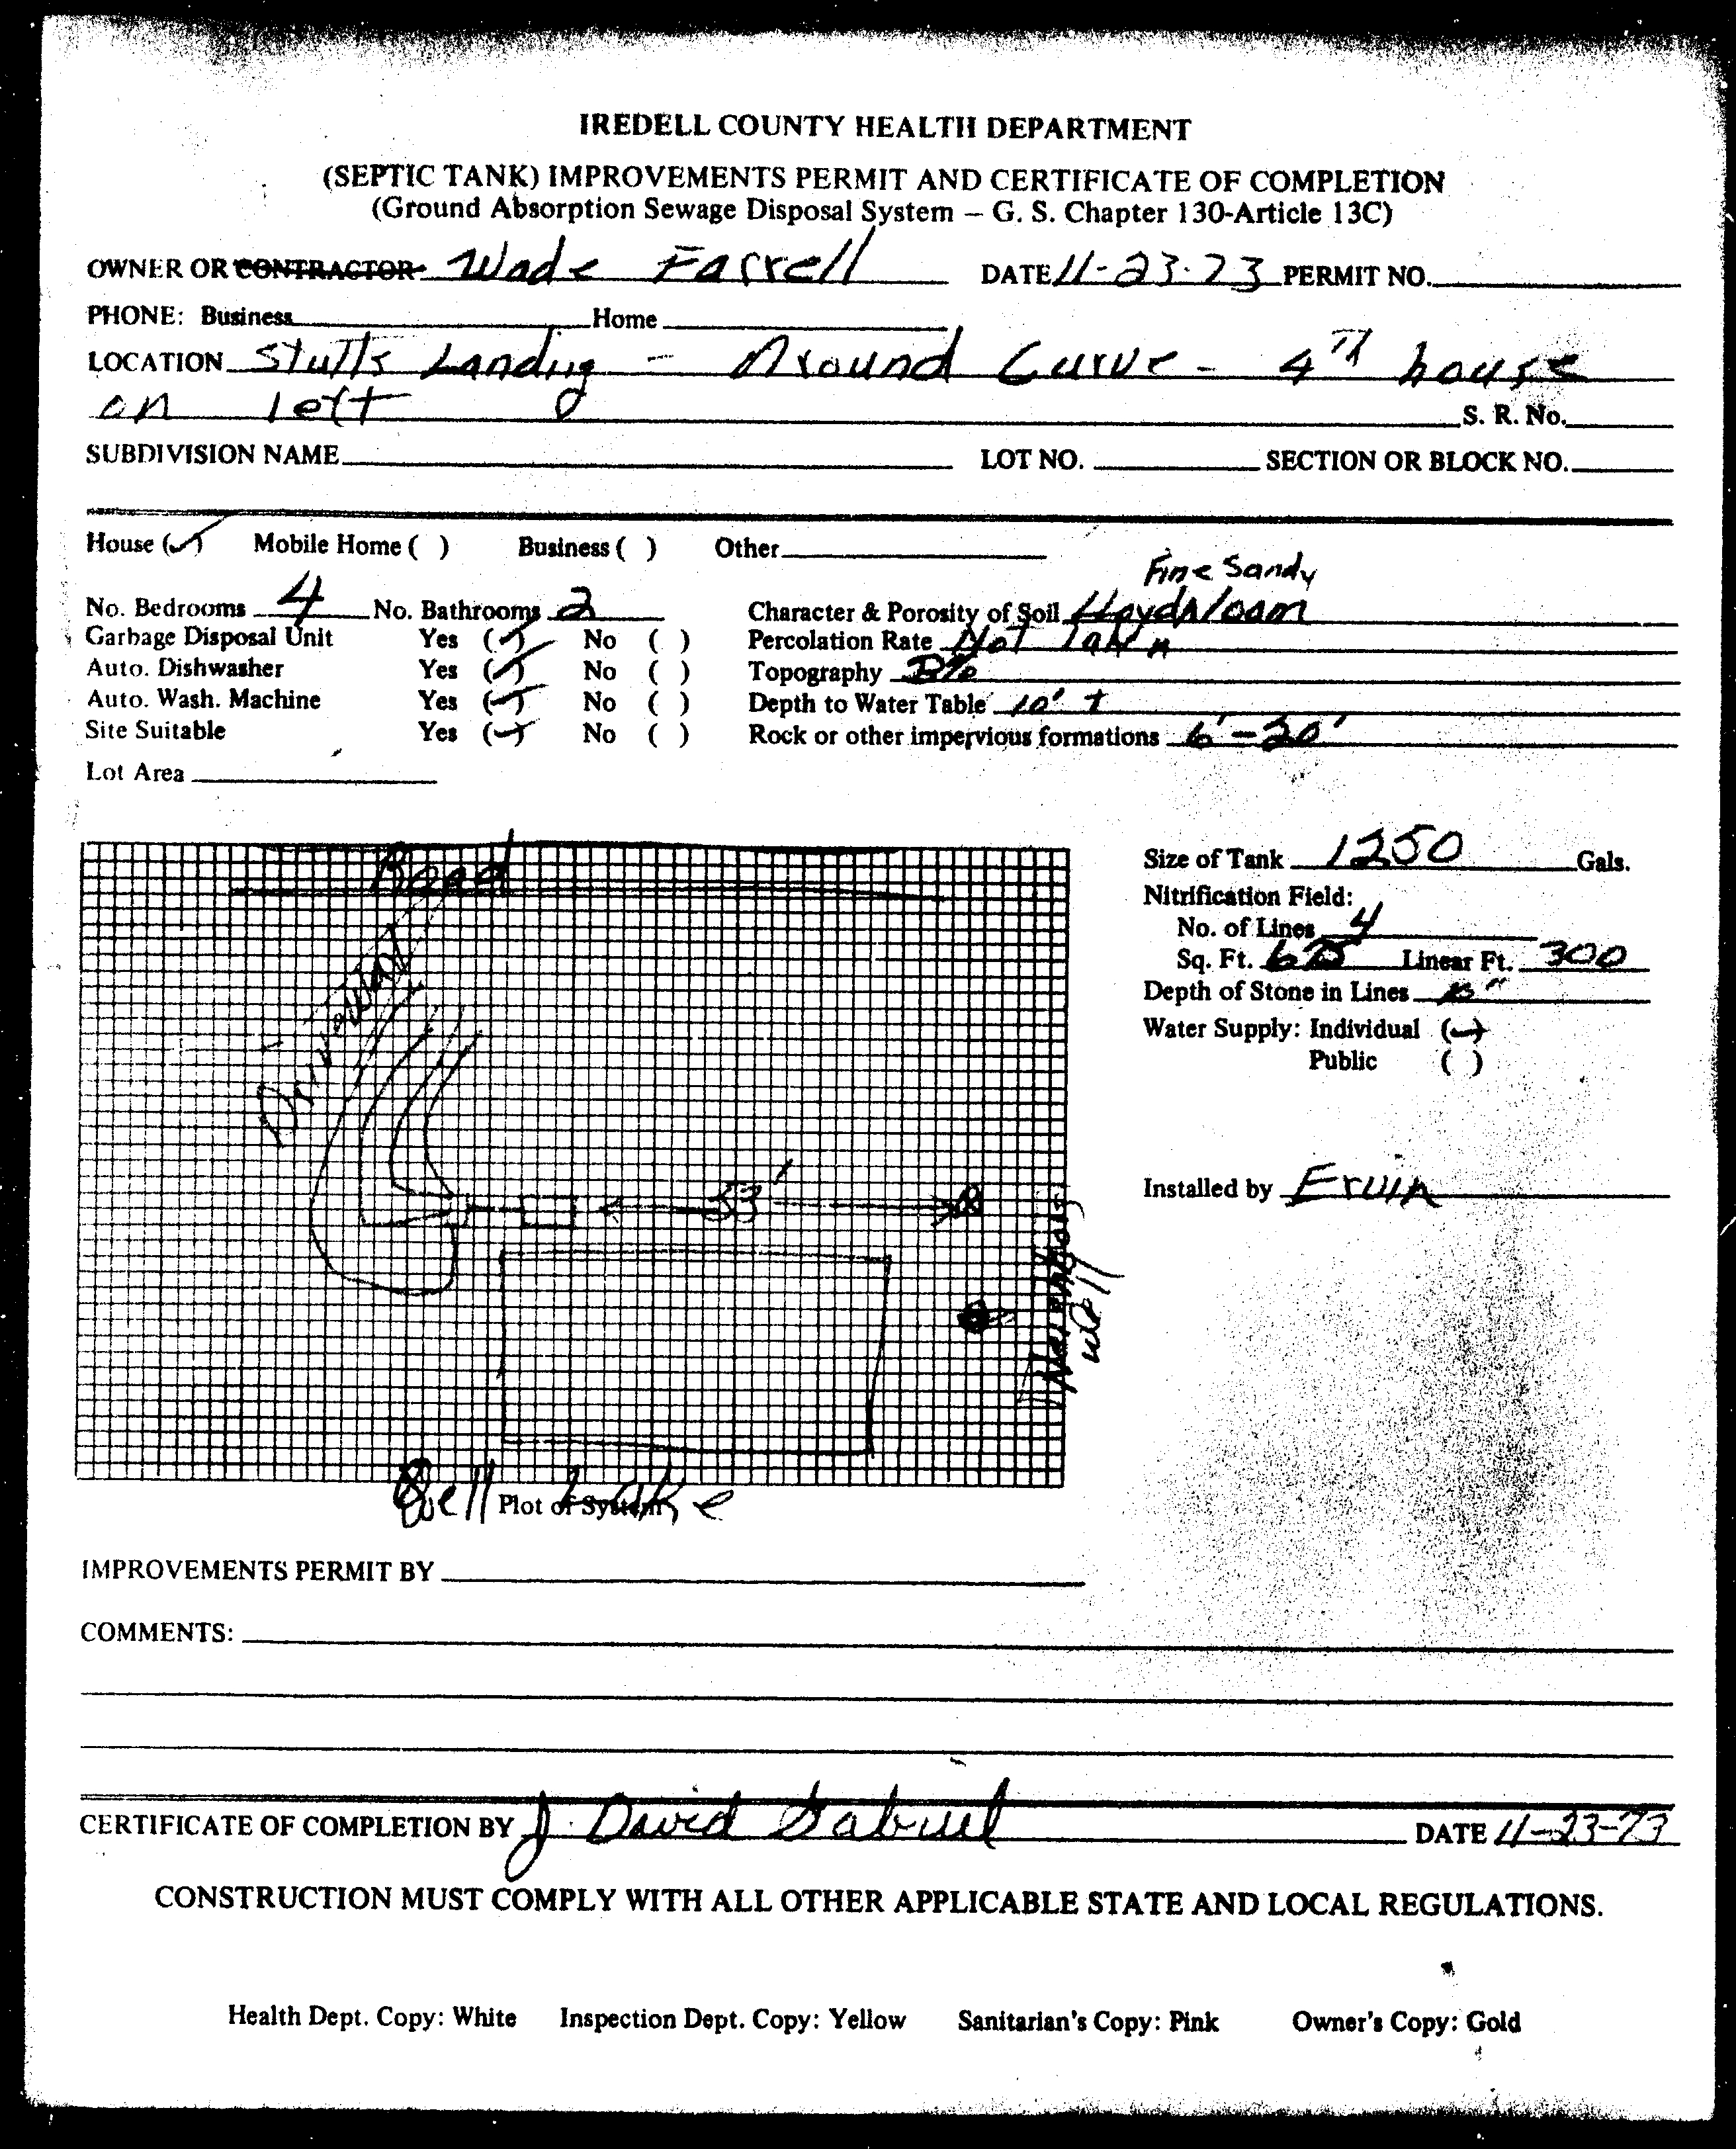 IREDELL COUNTY HEALTH DEPARTMENT
(SEPTIC TANK) IMPROVEMENTS PERMIT AND CERTIFICATE OF COMPLETION
(Ground Absorption Sewage Disposal System – G. S. Chapter 130-Article 13C)
OWNER OR CONTRACTOR Wade Farrell DATE 11-23-73 PERMIT NO.
PHONE: Business Home
LOCATION Stutts Landing - Around Curve - 4TH house
on left S. R. No.
SUBDIVISION NAME LOT NO. SECTION OR BLOCK NO.
House (✓) Mobile Home ( ) Business ( ) Other
Fine Sandy
No. Bedrooms 4 No. Bathrooms 2 Character & Porosity of Soil Lloyd loam
Garbage Disposal Unit Yes (✓) No ( ) Percolation Rate Not Taken
Auto. Dishwasher Yes (✓) No ( ) Topography
Auto. Wash. Machine Yes (✓) No ( ) Depth to Water Table 10' +
Site Suitable Yes (✓) No ( ) Rock or other impervious formations 6'-20'
Lot Area
Road
Driveway
53'
Neighbors
well
Well Lake
Plot of System
Size of Tank 1250 Gals.
Nitrification Field:
No. of Lines 4
Sq. Ft. Linear Ft. 300
Depth of Stone in Lines
Water Supply: Individual (✓)
Public ( )
Installed by Ervin
IMPROVEMENTS PERMIT BY
COMMENTS:
CERTIFICATE OF COMPLETION BY J. David Gabriel DATE 11-23-73
CONSTRUCTION MUST COMPLY WITH ALL OTHER APPLICABLE STATE AND LOCAL REGULATIONS.
Health Dept. Copy: White Inspection Dept. Copy: Yellow Sanitarian's Copy: Pink Owner's Copy: Gold